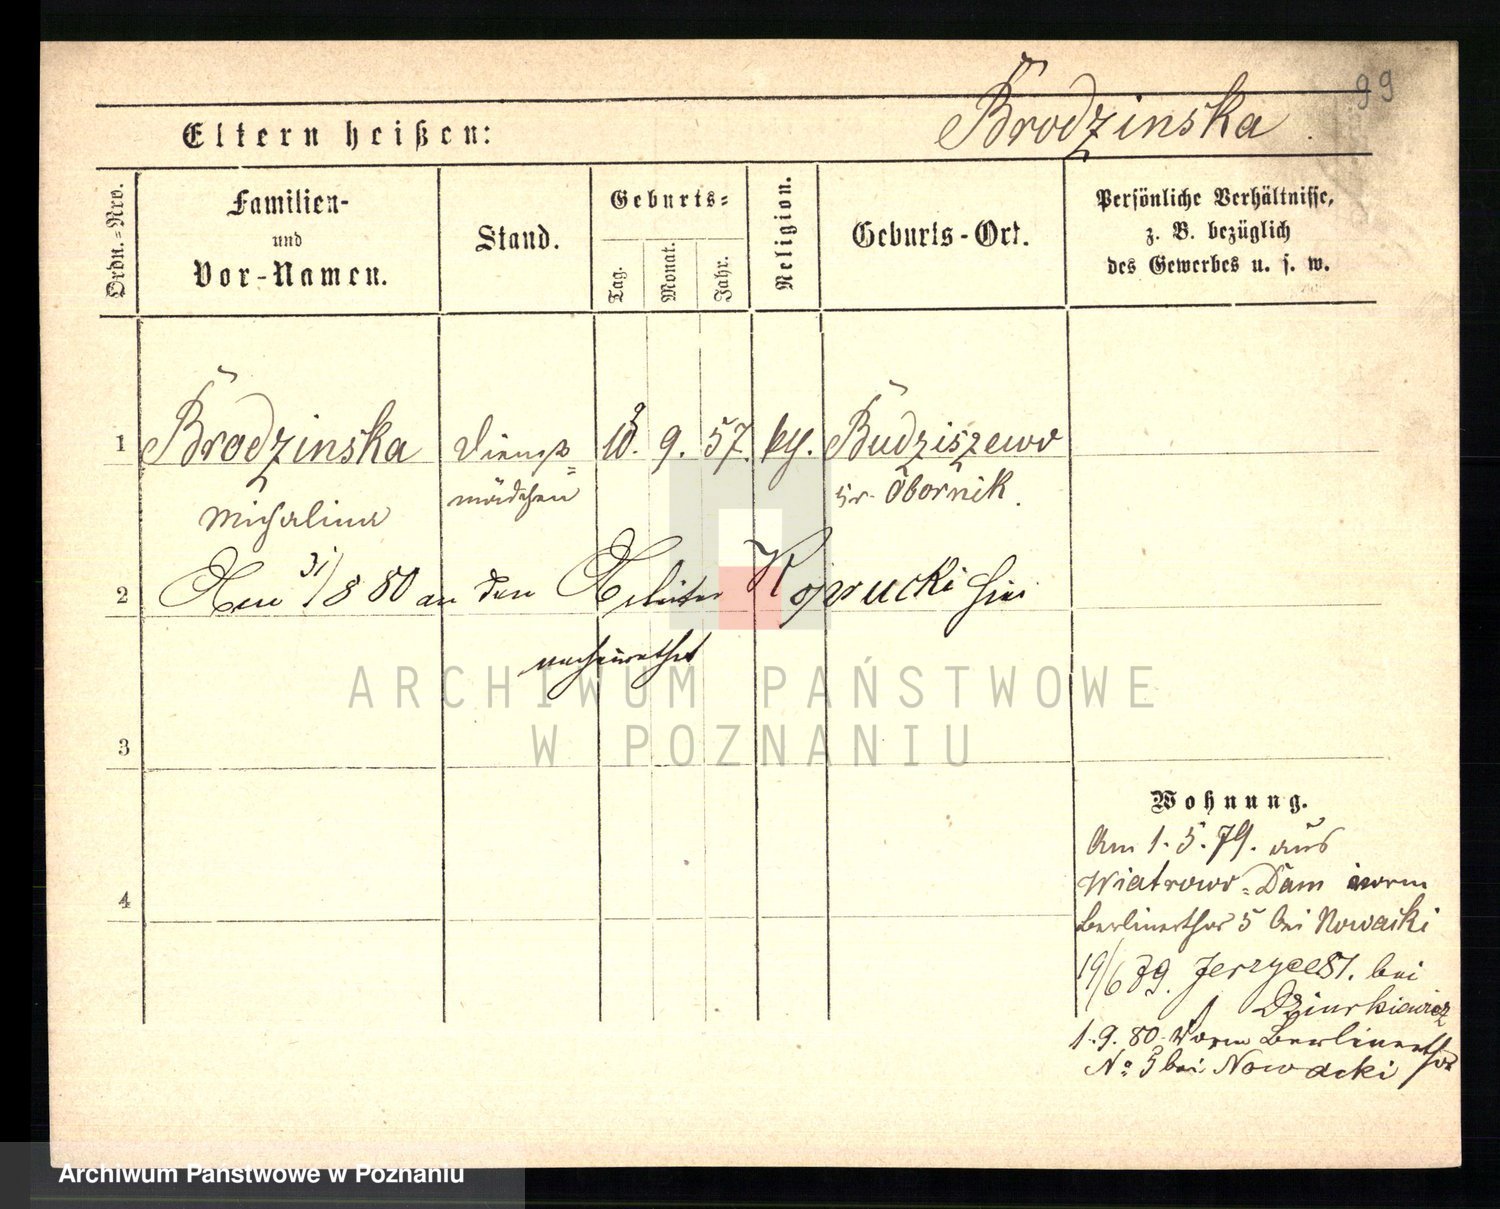 99
Brodzinska.
Eltern heißen:
Ordn.=Nro.
Familien-
und
Vor-Namen.
Stand.
Geburts=
Tag.
Monat.
Jahr.
Religion.
Geburts-Ort.
Persönliche Verhältnisse,
z. B. bezüglich
des Gewerbes u. s. w.
1 Brodzinska Dienst= 9. 57. Budziszewo
Michalina mädchen Kr. Obornik.
2 31/8 80 an den Arbeiter hier
verheirathet
3
4
Wohnung.
Am 1. 5. 79. aus
Wiatrowo-Dam vorm
Berlinerthor 5 bei Nowacki
19/6 79. Jerzycest. bei
Dziurkiewicz
1. 9. 80. Vorm Berlinerthor
No 5 bei Nowacki
ARCHIWUM PAŃSTWOWE
W POZNANIU
Archiwum Państwowe w Poznaniu